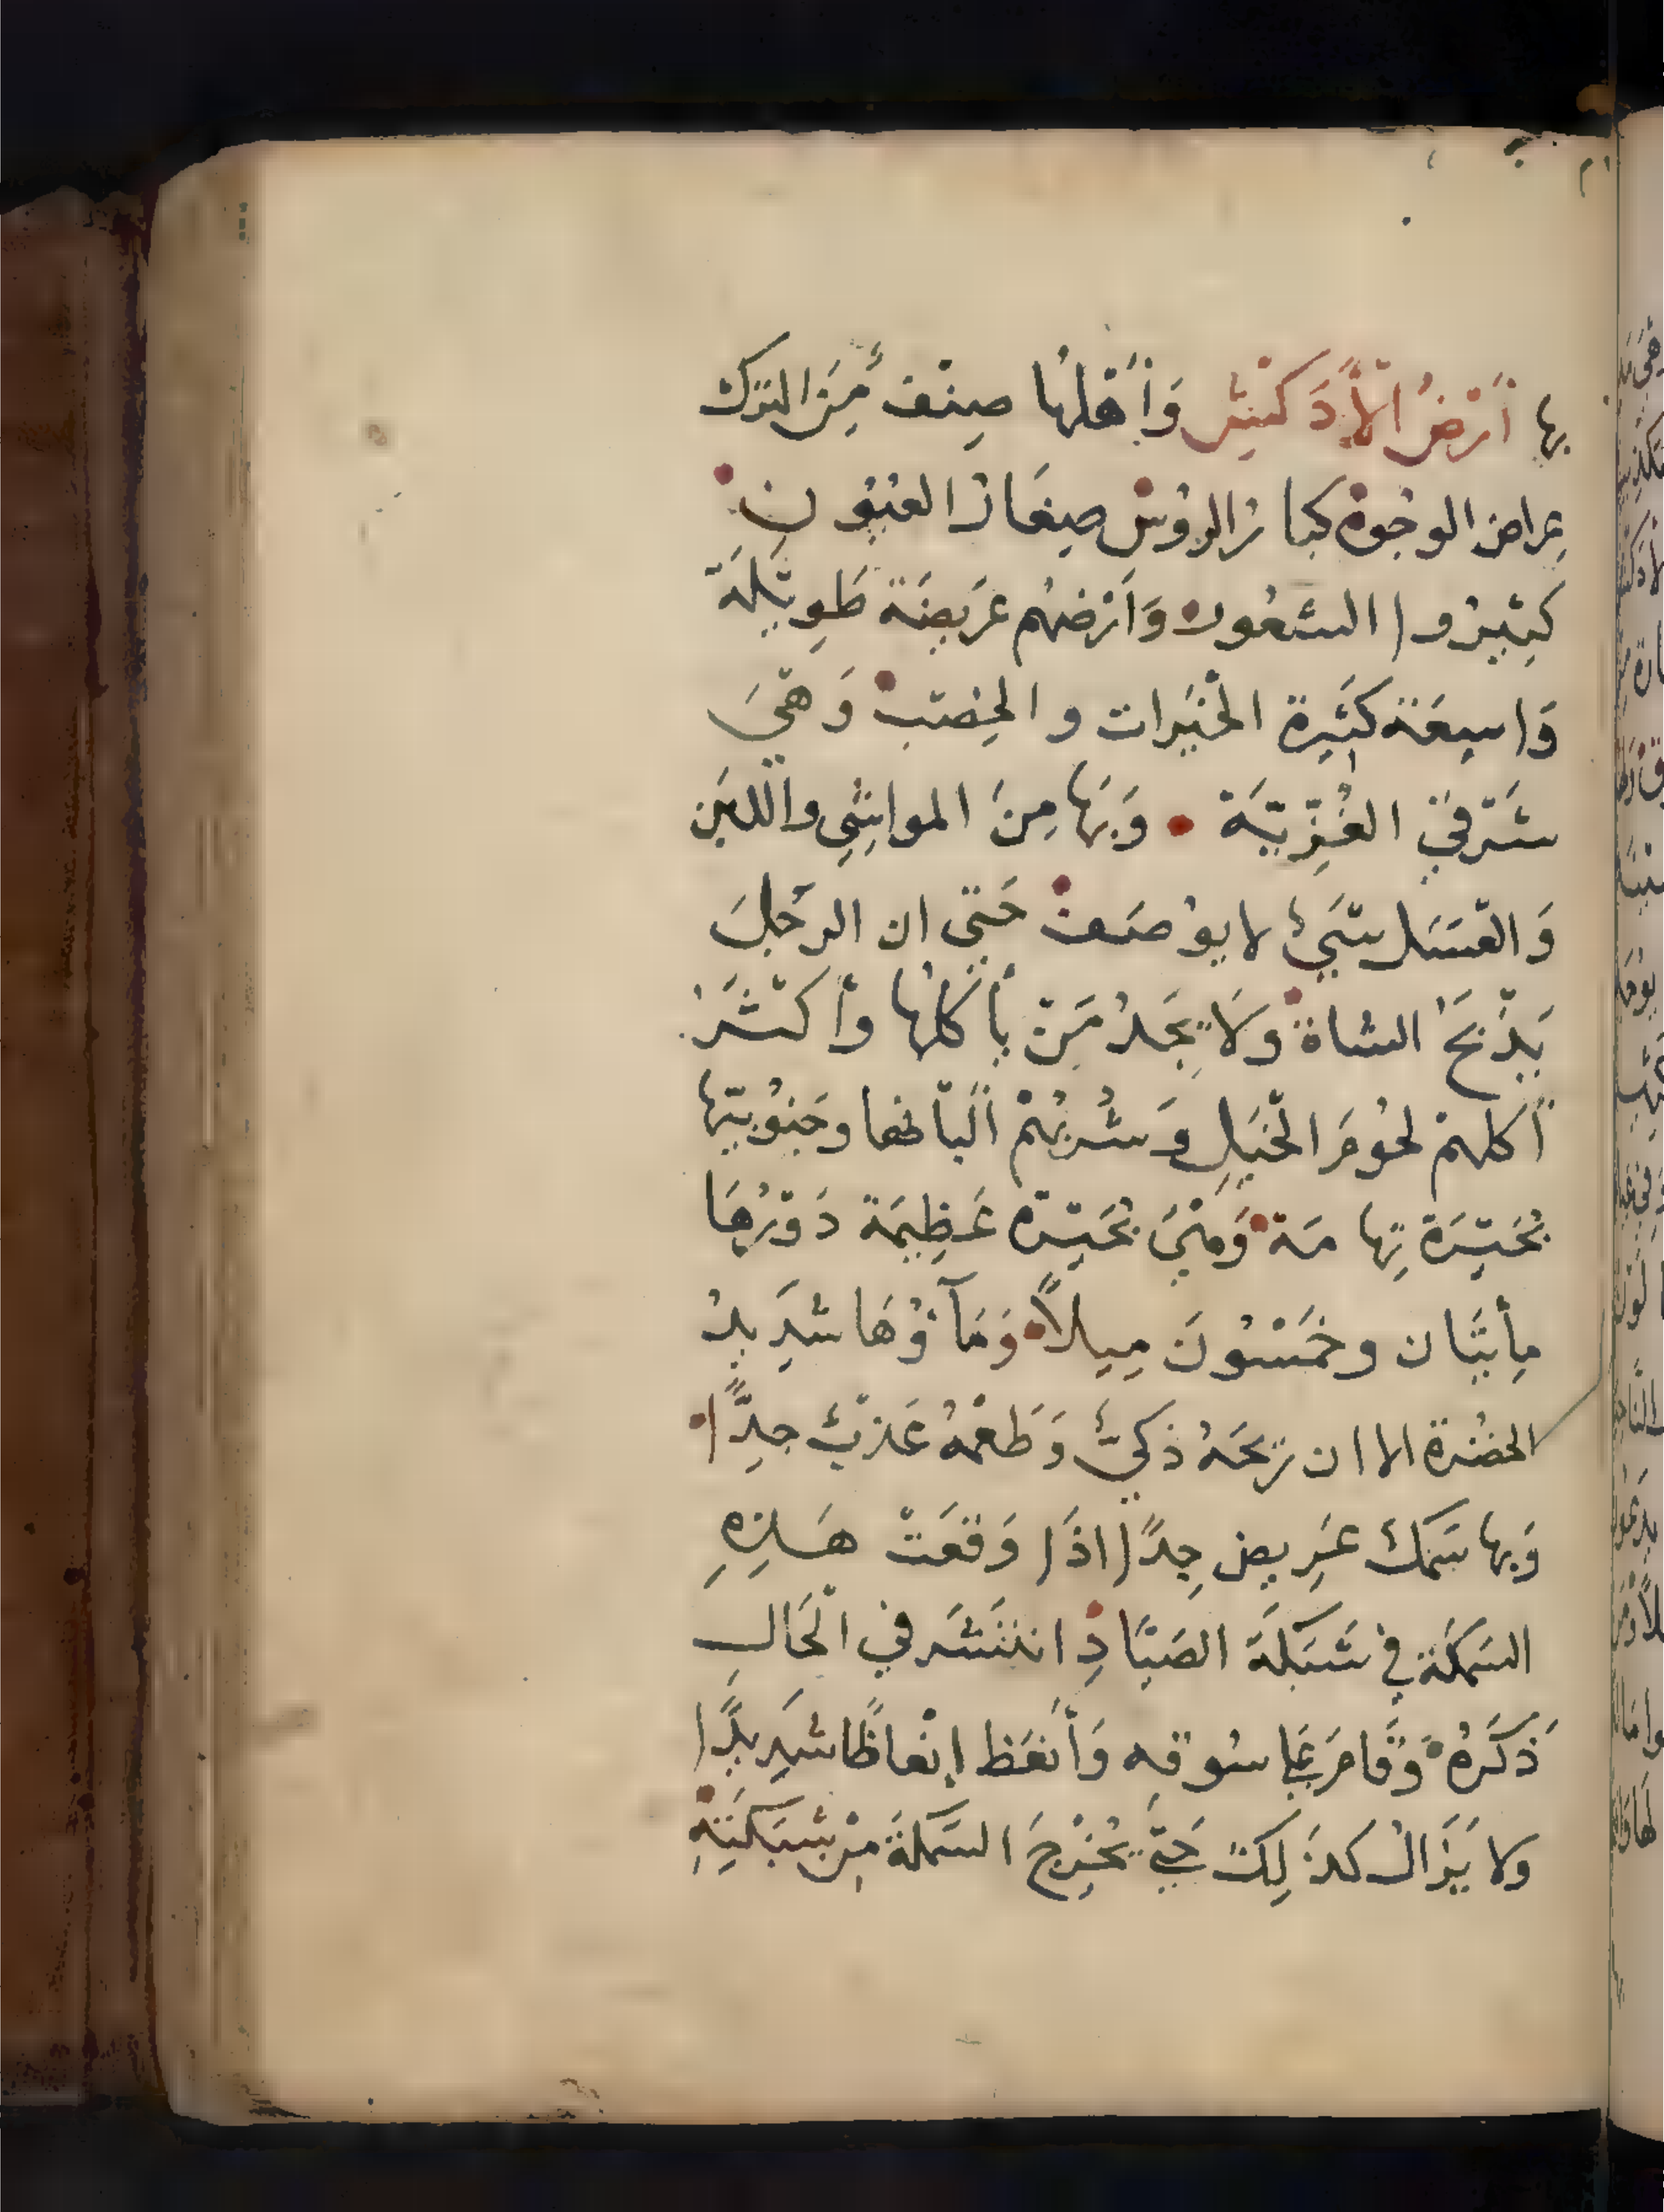 بها أَرْضُ الأَدَكِنِش وَأَهْلُهَا صِنْفٌ مِنَ الترك
عِراض الوجُوه كبار الروُس صِغَار العيُون
كثِيرُوا الشعُور وَأَرْضهُم عَريضَة طَوِيلَة
وَاسِعَة كَثِيرة الخيرات والخِصْب وَهيَ
شَرْقيّ الغُزِّيَّة وَبِهَا مِنَ المواشِي واللبَن
وَالعَسَل شَيْءٌ لا يوُصَف حَتّى ان الرجُل
يَذْبَحَ الشاة وَلا يَجدُ مَنْ يأكلُهَا وأكثَرُ
أكلهمْ لحُومَ الخَيل وَشُربُهُمْ ألبانها وجَنُوبيّها
بُحَيْرَة تِهَامَة وَهيَ بُحَيْرة عَظِيمَة دَوْرُهَا
مِأيتَان وخَمْسُونَ مِيلاً وَمَآؤُهَا شَدِيدُ
الخضْرَة الا ان رِيحَهُ ذكيٌّ وَطَعْمُهُ عَذْبٌ جِدًّا
وَبها سَمَك عَرِيض جِدًّا اذَا وَقَعَتْ هَذِهِ
السَمكَة في شَبَكَة الصَيَّادِ انتَشَر في الْحَالِ
ذَكَرُهُ وَقَامَ عَلى سُوقهِ وَأَنعَظ إنْعاظًا شَدِيدًا
ولا يَزَالُ كَذَلِكَ حَتَّى يُخْرِجَ السَمَكَة مِنْ شَبَكَتِهِ